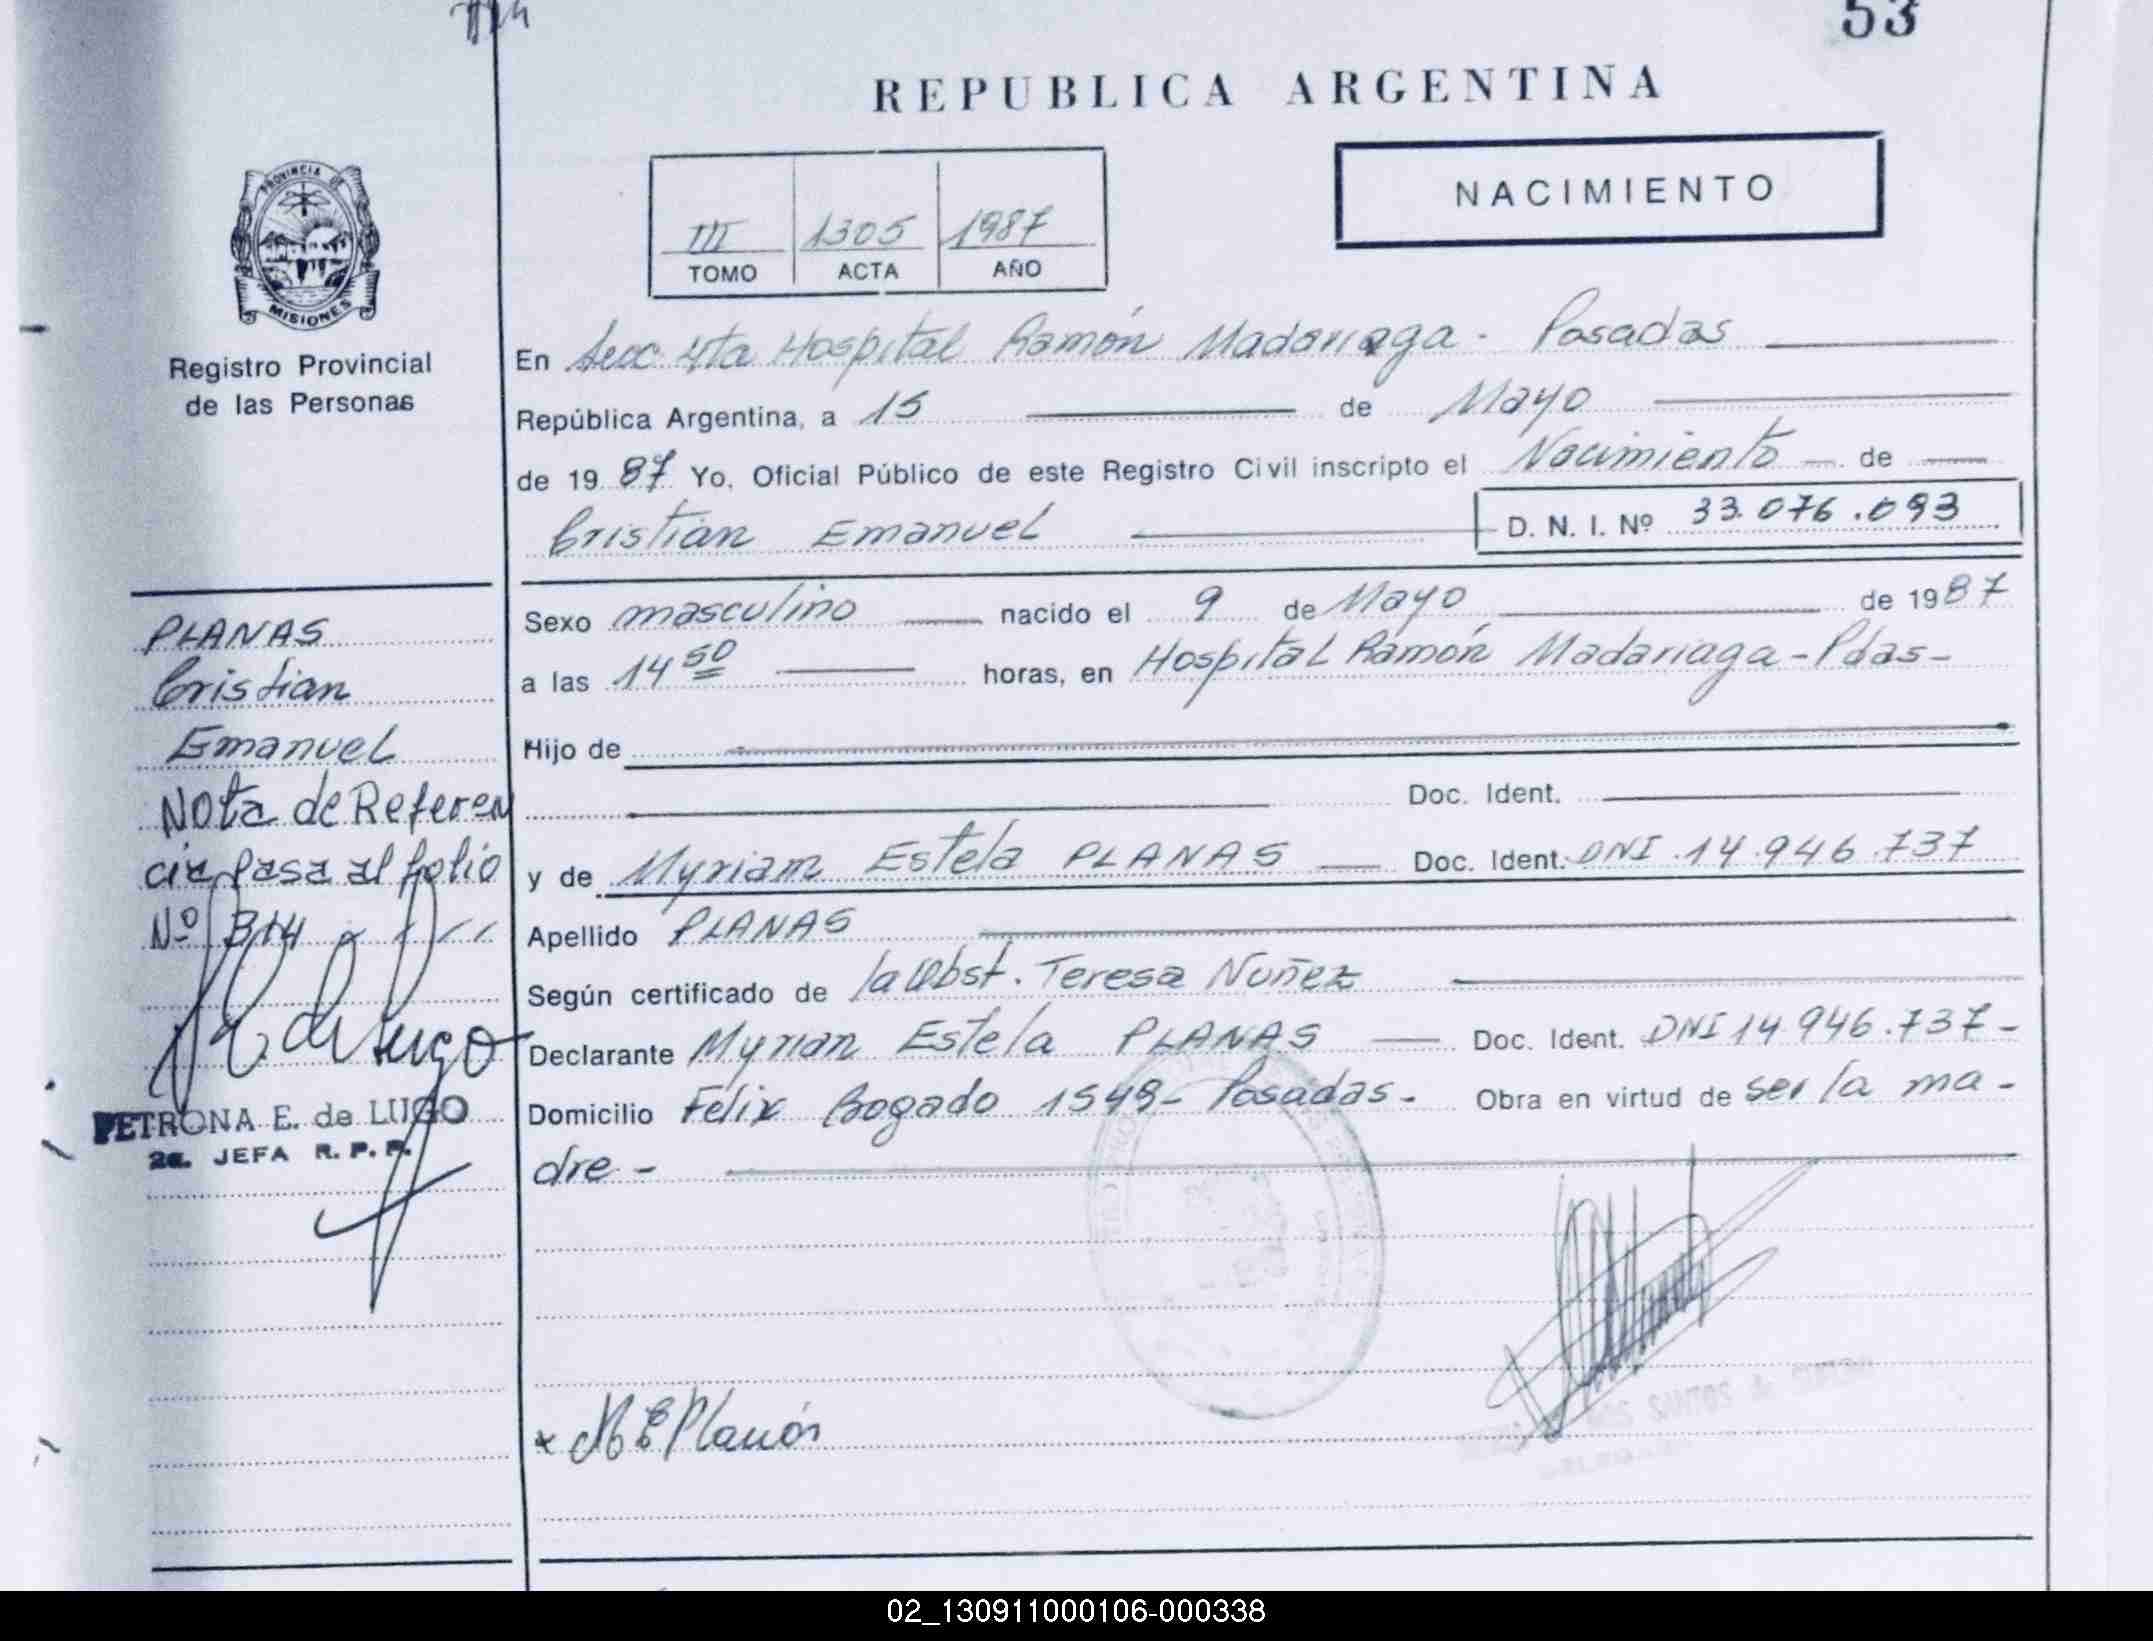 53
REPUBLICA ARGENTINA
PROVINCIA DE
MISIONES
Registro Provincial
de las Personas
NACIMIENTO
III 1305 1987
TOMO ACTA AÑO
En Secc 4ta Hospital Ramón Madariaga - Posadas
República Argentina, a 15 de Mayo
de 1987 Yo, Oficial Público de este Registro Civil inscripto el Nacimiento de
Cristian Emanuel D. N. I. Nº 33.076.093
Sexo masculino nacido el 9 de Mayo de 1987
a las 14 50 horas, en Hospital Ramón Madariaga - Pdas -
Hijo de
Doc. Ident.
y de Myriam Estela PLANAS Doc. Ident. DNI 14.946.737
Apellido PLANAS
Según certificado de la Obst. Teresa Nuñez
Declarante Myrian Estela PLANAS Doc. Ident. DNI 14.946.737 -
Domicilio Félix Bogado 1549 - Posadas - Obra en virtud de ser la ma -
dre -
PLANAS
Cristian
Emanuel
Nota de Referen
cia Pasa al folio
Nº 314
P. E. de Lugo
PETRONA E. de LUGO
2a. JEFA R. P. P.
x M E Planás
02_130911000106-000338